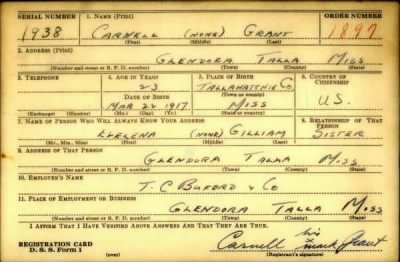 SERIAL NUMBER 1. NAME (Print) ORDER NUMBER
1938 CARNELL (NONE) GRANT 1897
(First) (Middle) (Last)
2. ADDRESS (Print)
GLENDORA TALLA MISS
(Number and street or R. F. D. number) (Town) (County) (State)
3. TELEPHONE 4. AGE IN YEARS 5. PLACE OF BIRTH 6. COUNTRY OF CITIZENSHIP
23 TALLAHATCHIE CO.
DATE OF BIRTH (Town or county)
MAR 22 1917 MISS U.S.
(Exchange) (Number) (Mo.) (Day) (Yr.) (State or country)
7. NAME OF PERSON WHO WILL ALWAYS KNOW YOUR ADDRESS 8. RELATIONSHIP OF THAT PERSON
(NONE) GILLIAM SISTER
(Mr., Mrs., Miss) (First) (Middle) (Last)
9. ADDRESS OF THAT PERSON
GLENDORA TALLA MISS
(Number and street or R. F. D. number) (Town) (County) (State)
10. EMPLOYER'S NAME
T. C. BUFORD & CO
11. PLACE OF EMPLOYMENT OR BUSINESS
GLENDORA TALLA MISS
(Number and street or R. F. D. number) (Town) (County) (State)
I AFFIRM THAT I HAVE VERIFIED ABOVE ANSWERS AND THAT THEY ARE TRUE.
REGISTRATION CARD Carnell his x mark Grant
D. S. S. Form 1 (over) (Registrant's signature)